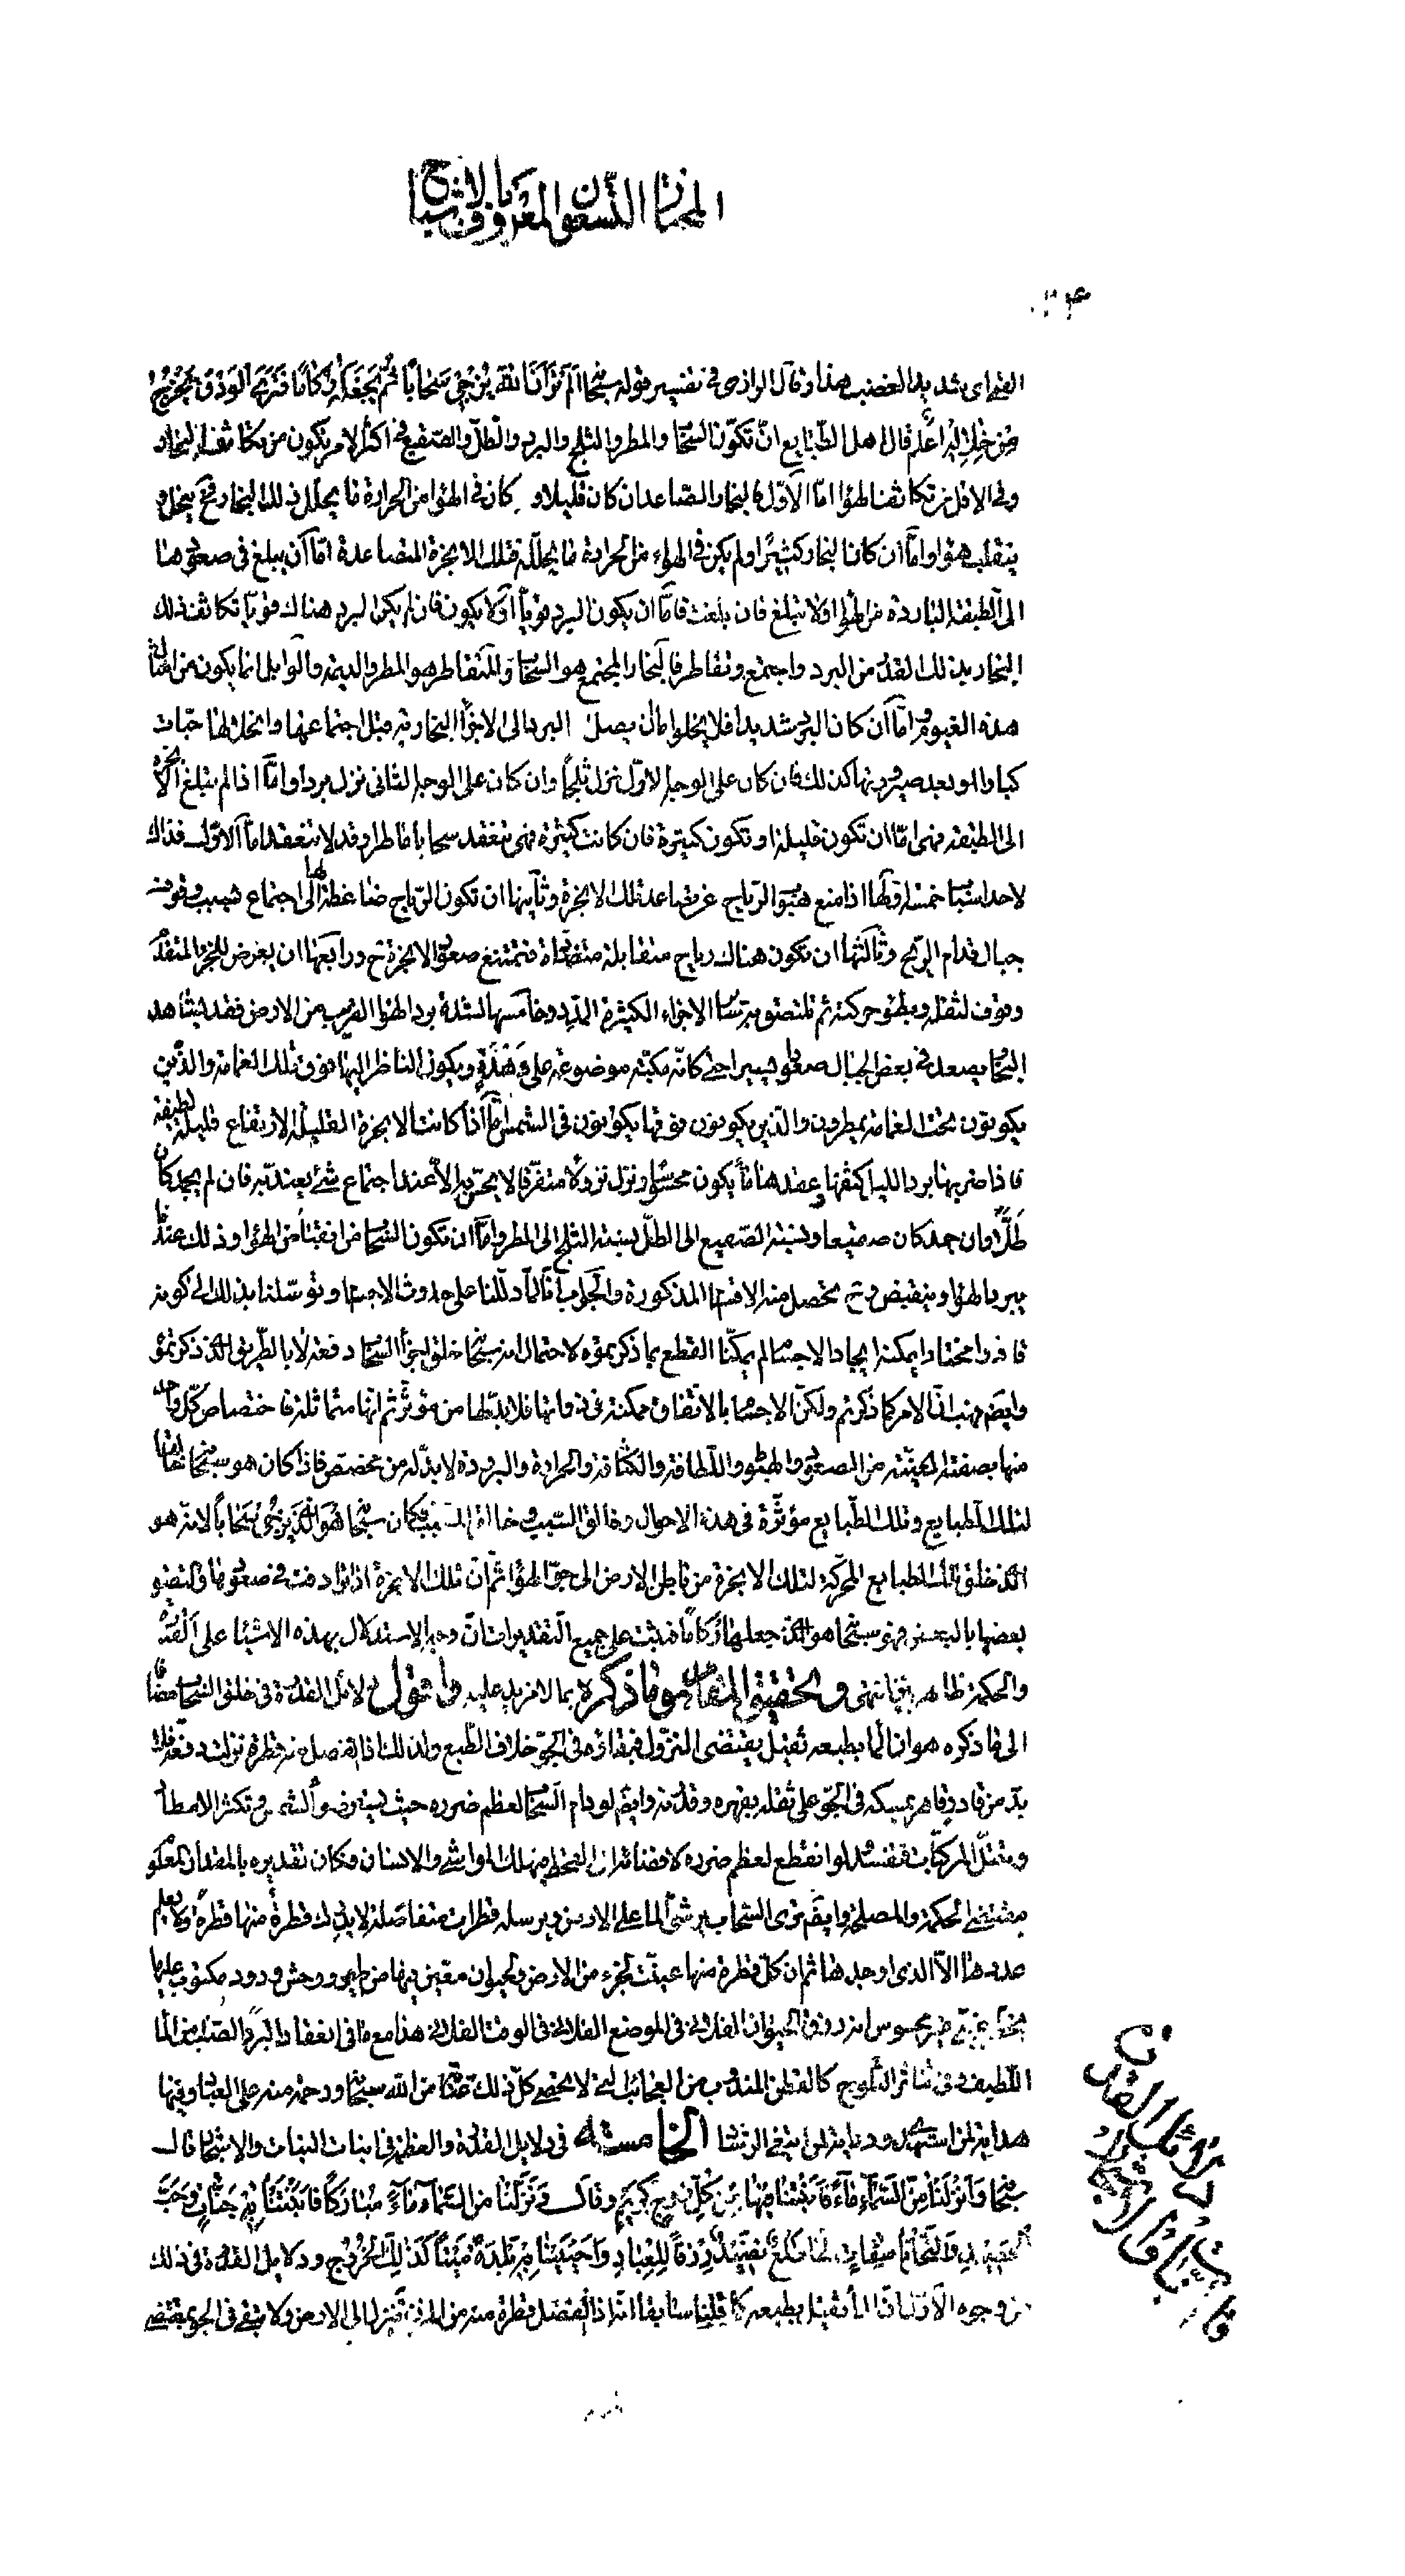 المختار التسعون المعروف بالاشباح
الفم اى شديد الغضب هذا وقال الرازى فى تفسير قوله سبحانه اَلَمْ تَرَ اَنَّ اللّٰهَ يُزْجِي سَحٰابًا ثُمَّ يَجْعَلُهُ رُكٰامًا فَتَرَى الْوَدْقَ يَخْرُجُ
مِنْ خِلٰالِهِ اعلم قال اهل الطّبايع انّ تكوّن السّحاب والمطر والثلج والبرد والطّلّ والصّقيع فى اكثر الامر يكون من تكاثف البخار
وفى الاقل من تكاثف الهواء امّا الاوّل فالبخار الصّاعد ان كان قليلا و كان فى الهواء من الحرارة ما يحلّل ذلك البخار فح ينحلّ و
ينقلب هواء وامّا ان كان البخار كثيرًا ولم يكن فى الهواء من الحرارة ما يحلّله فتلك الابخرة المتصاعدة امّا ان يبلغ فى صعودها
الى الطبقة الباردة من الهواء او لا تبلغ فان بلغت فامّا ان يكون البرد قويّا او لا يكون فان لم يكن البرد هناك قويّا تكاثف ذلك
البخار بذلك القدر من البرد واجتمع وتقاطر فالبخار المجتمع هو السّحاب والمتقاطر هو المطر والديمة والوابل انما يكون من امثال
هذه الغيوم وامّا ان كان البرد شديدا فلا يخلو امّا ان يصل البرد الى الاجزاء البخارية قبل اجتماعها وانحلالها حبّات
كبارا او بعد صيرورتها كذلك فان كان على الوجه الاوّل نزل ثلجًا وان كان على الوجه الثانى نزل بردا وامّا اذا لم يبلغ الابخرة
الى الطبقة فهى امّا ان تكون قليلة او تكون كثيرة فان كانت كثيرة فهى تنعقد سحابا ماطرا وقد لا تنعقد امّا الاوّل فذاك
لاحد اسباب خمسة اوّلها اذا منع هبوب الرّياح عن تصاعد تلك الابخرة وثانيها ان تكون الرّياح ضاغطة لها الى اجتماع بسبب وقوف
جبال قدام الرّيح وثالثها ان تكون هناك رياح متقابلة متصادمة فتمتنع صعود الابخرة ح ورابعها ان يعرض للجزء المتقدّم
وقوف لثقله وبطوء حركته ثم تلتصق به سائر الاجزاء الكثيرة المدد وخامسها لشدّة برد الهواء القريب من الارض فقد نشاهد
البخار يصعد فى بعض الجبال صعودا يسيرا حتى كانّه مكبّة موضوعة على وَهْدَةٍ ويكون الناظر اليها فوق تلك الغمامة والّذين
يكونون تحت الغمامة يمطرون والّذين يكونون فوقها يكونون فى الشمس وامّا اذا كانت الابخرة القليلة الارتفاع قليلة لطيفة
فاذا ضربها برد الليل كثفها وعقدها ماء يكون محسوسا ونزل نزولا متفرّقا لا يحسّ به الاّ عند اجتماع شئ يعتدّ به فان لم يجمد كان
طلّا وان جمد كان صقيعا ونسبة الصّقيع الى الطّلّ نسبة الثلج الى المطر وامّا ان تكون السّحاب من انقباض الهواء وذلك عند ما
يبرد الهواء وينقبض وح يحصل منه الاقسام المذكورة والجواب انّا لمّا دلّلنا على حدوث الاجسام وتوسّلنا بذلك الى كونه
قادرا مختارا يمكنه ايجاد الاجسام لم يمكنّا القطع بما ذكرتموه لاحتمال انه سبحانه خلق اجزاء السّحاب دفعة لا بالطّريق الّذى ذكرتموه
وايضم فهب انّ الامر كما ذكرتم ولكنّ الاجسام بالاتّفاق ممكنة فى ذواتها فلا بدّ لها من مؤثّر ثم انّها متماثلة فاختصاص كلّ واحد
منها بصفته المعيّنة من الصعود والهبوط واللّطافة والكثافة والحرارة والبرودة لا بدّ له من مخصّص فاذا كان هو سبحانه خالقا
لتلك الطبايع وتلك الطّبايع مؤثّرة فى هذه الاحوال وخالق السّبب خالق المسبّب فكان سبحانه هو الَّذي يُزْجِي سَحٰابًا لانّه هو
الّذى خلق تلك الطبايع المحرّكة لتلك الابخرة من باطن الارض الى جوّ الهواء ثمّ انّ تلك الابخرة اذا ترادفت فى صعودها والتصق
بعضها بالبعض فهو سبحانه هو الّذى جعلها رُكٰامًا فثبت على جميع التقديرات انّ وجه الاستدلال بهذه الاشياء على القدرة
والحكمة ظاهر بيّن انتهى وتحقيق المقام هو ما ذكره بما لا مزيد عليه وأقول دلائل القدرة فى خلق السّحاب مضافا
الى ما ذكره هو انّ الماء بطبعه ثقيل يقتضى النزول فبقاؤه فى الجوّ خلاف الطّبع ولذلك اذا انفصل منه قطرة نزلت دفعة فلا
بدّ من قادر قاهر يمسكه فى الجوّ على ثقله بقهره وقدرته وايضم لو دام السّحاب لعظم ضرره حيث يستر ضوء الشمس وتكثر الامطار
وتبتلّ المركّبات فتفسد ولو انقطع لعظم ضرره لافضائه الى القحط فيهلك المواشى والانسان فكان تقديره بالمقدار المعلوم
مقتضى الحكمة والمصلحة وايضم ترى السّحاب يرشّ الماء على الارض ويرسله قطرات متفاصلة لا يدرك قطرة منها قطرة ولا يعلم
عددها الاّ الّذى اوجدها ثم انّ كلّ قطرة منها عيّنت لجزء من الارض ولحيوان معيّن فيها من طير ووحش ودود مكتوب عليها
بخطّ غيبىّ غير محسوس انه رزق الحيوان الفلانى فى الموضع الفلانى فى الوقت الفلانى هذا مع ما فى انعقاد البرد الصّلب من الماء
اللّطيف وفى تناثر الثّلوج كالقطن المندوف من العجائب الّتى لا تحصى كلّ ذلك من اللّه سبحانه ورحمة منه على العباد وفيها
هداية لمن استهدى ودراية لمن ابتغى الرّشاد الخامسة فى دلايل القدرة والعظمة فى انبات النبات والاشجار قال
سبحانه وَاَنْزَلْنٰا مِنَ السَّمٰاءِ مٰاءً فَاَنْبَتْنٰا فِيْهٰا مِنْ كُلِّ زَوْجٍ كَرِيْمٍ وقال وَنَزَّلْنٰا مِنَ السَّمٰاءِ مٰاءً مُبٰارَكًا فَاَنْبَتْنٰا بِهِ جَنّٰاتٍ وَحَبَّ
الْحَصِيْدِ وَالنَّخْلَ بٰاسِقٰاتٍ لَهٰا طَلْعٌ نَضِيْدٌ رِزْقًا لِلْعِبٰادِ وَاَحْيَيْنٰا بِهِ بَلْدَةً مَيْتًا كَذٰلِكَ الْخُرُوْجُ ودلايل القدرة فى ذلك
من وجوه الاوّل انّ الماء ثقيل بطبعه كما قلنا سابقا انّه اذا انفصل قطرة منه من المزن تنزل الى الارض ولا تبقى فى الجوّ بمقتضى
دلائل القدرة
فى انبات النبات والاشجار